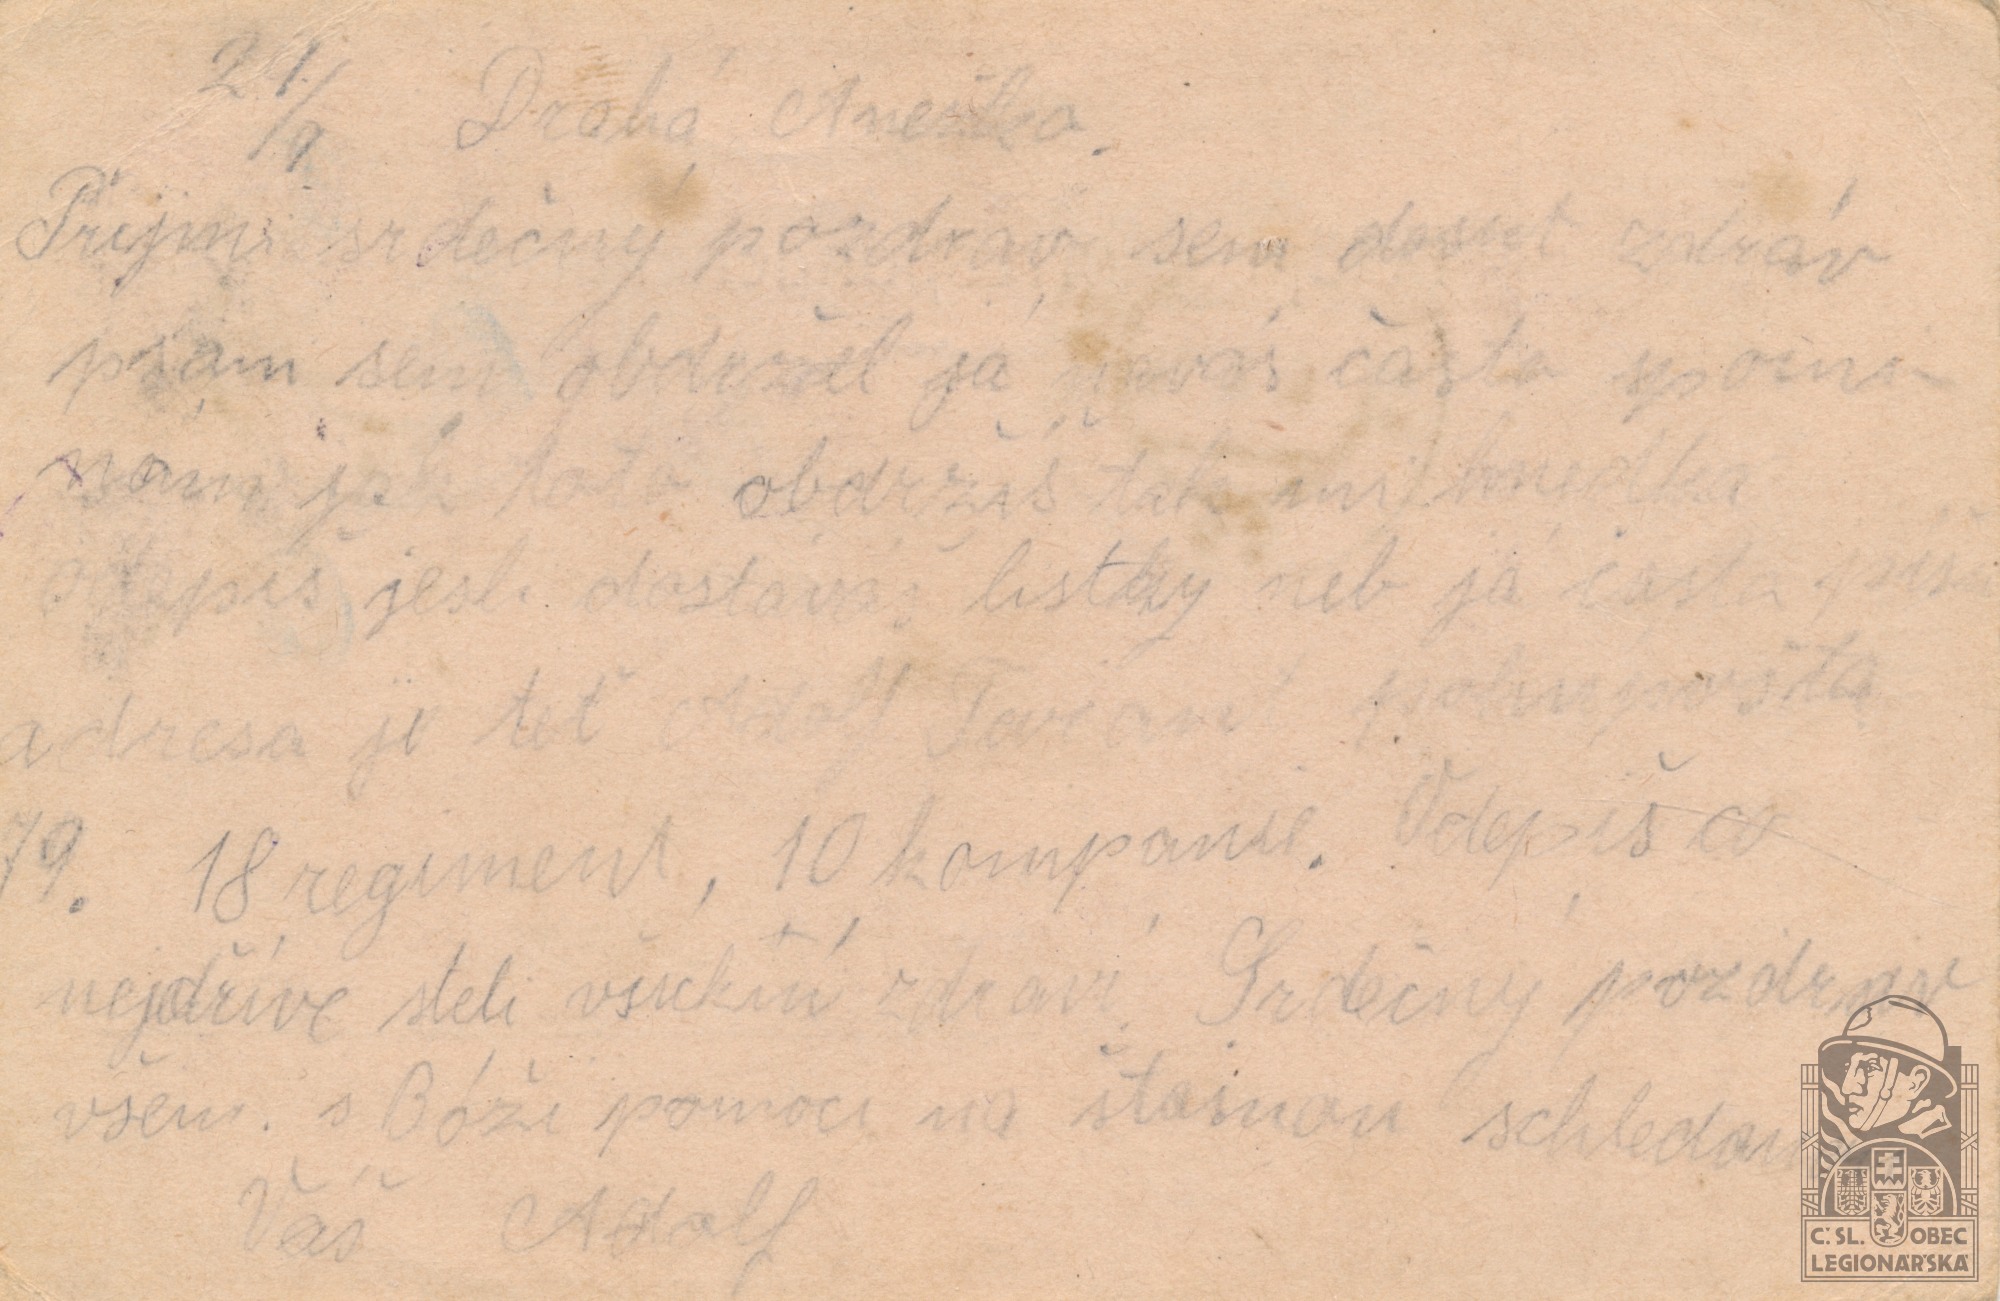 21/9 Drahá Anežko.
Přijmi srdečný pozdrav sem dosut zdráv
psám sem obdržel já na vás často spomi
nám jak toto obdržíš tak mi hnedka
odepiš jesli dostáváš lístky neb já často píšu
adresa je teť Adolf polní pošta
79. 18 regiment, 10 kompanie. Odepiš co
nejdříve steli všickni zdraví. Srdečný pozdrav
všem. s Boží pomoci na štasnou schledanou
Váš Adolf
Č.SL. OBEC
LEGIONÁŘSKÁ